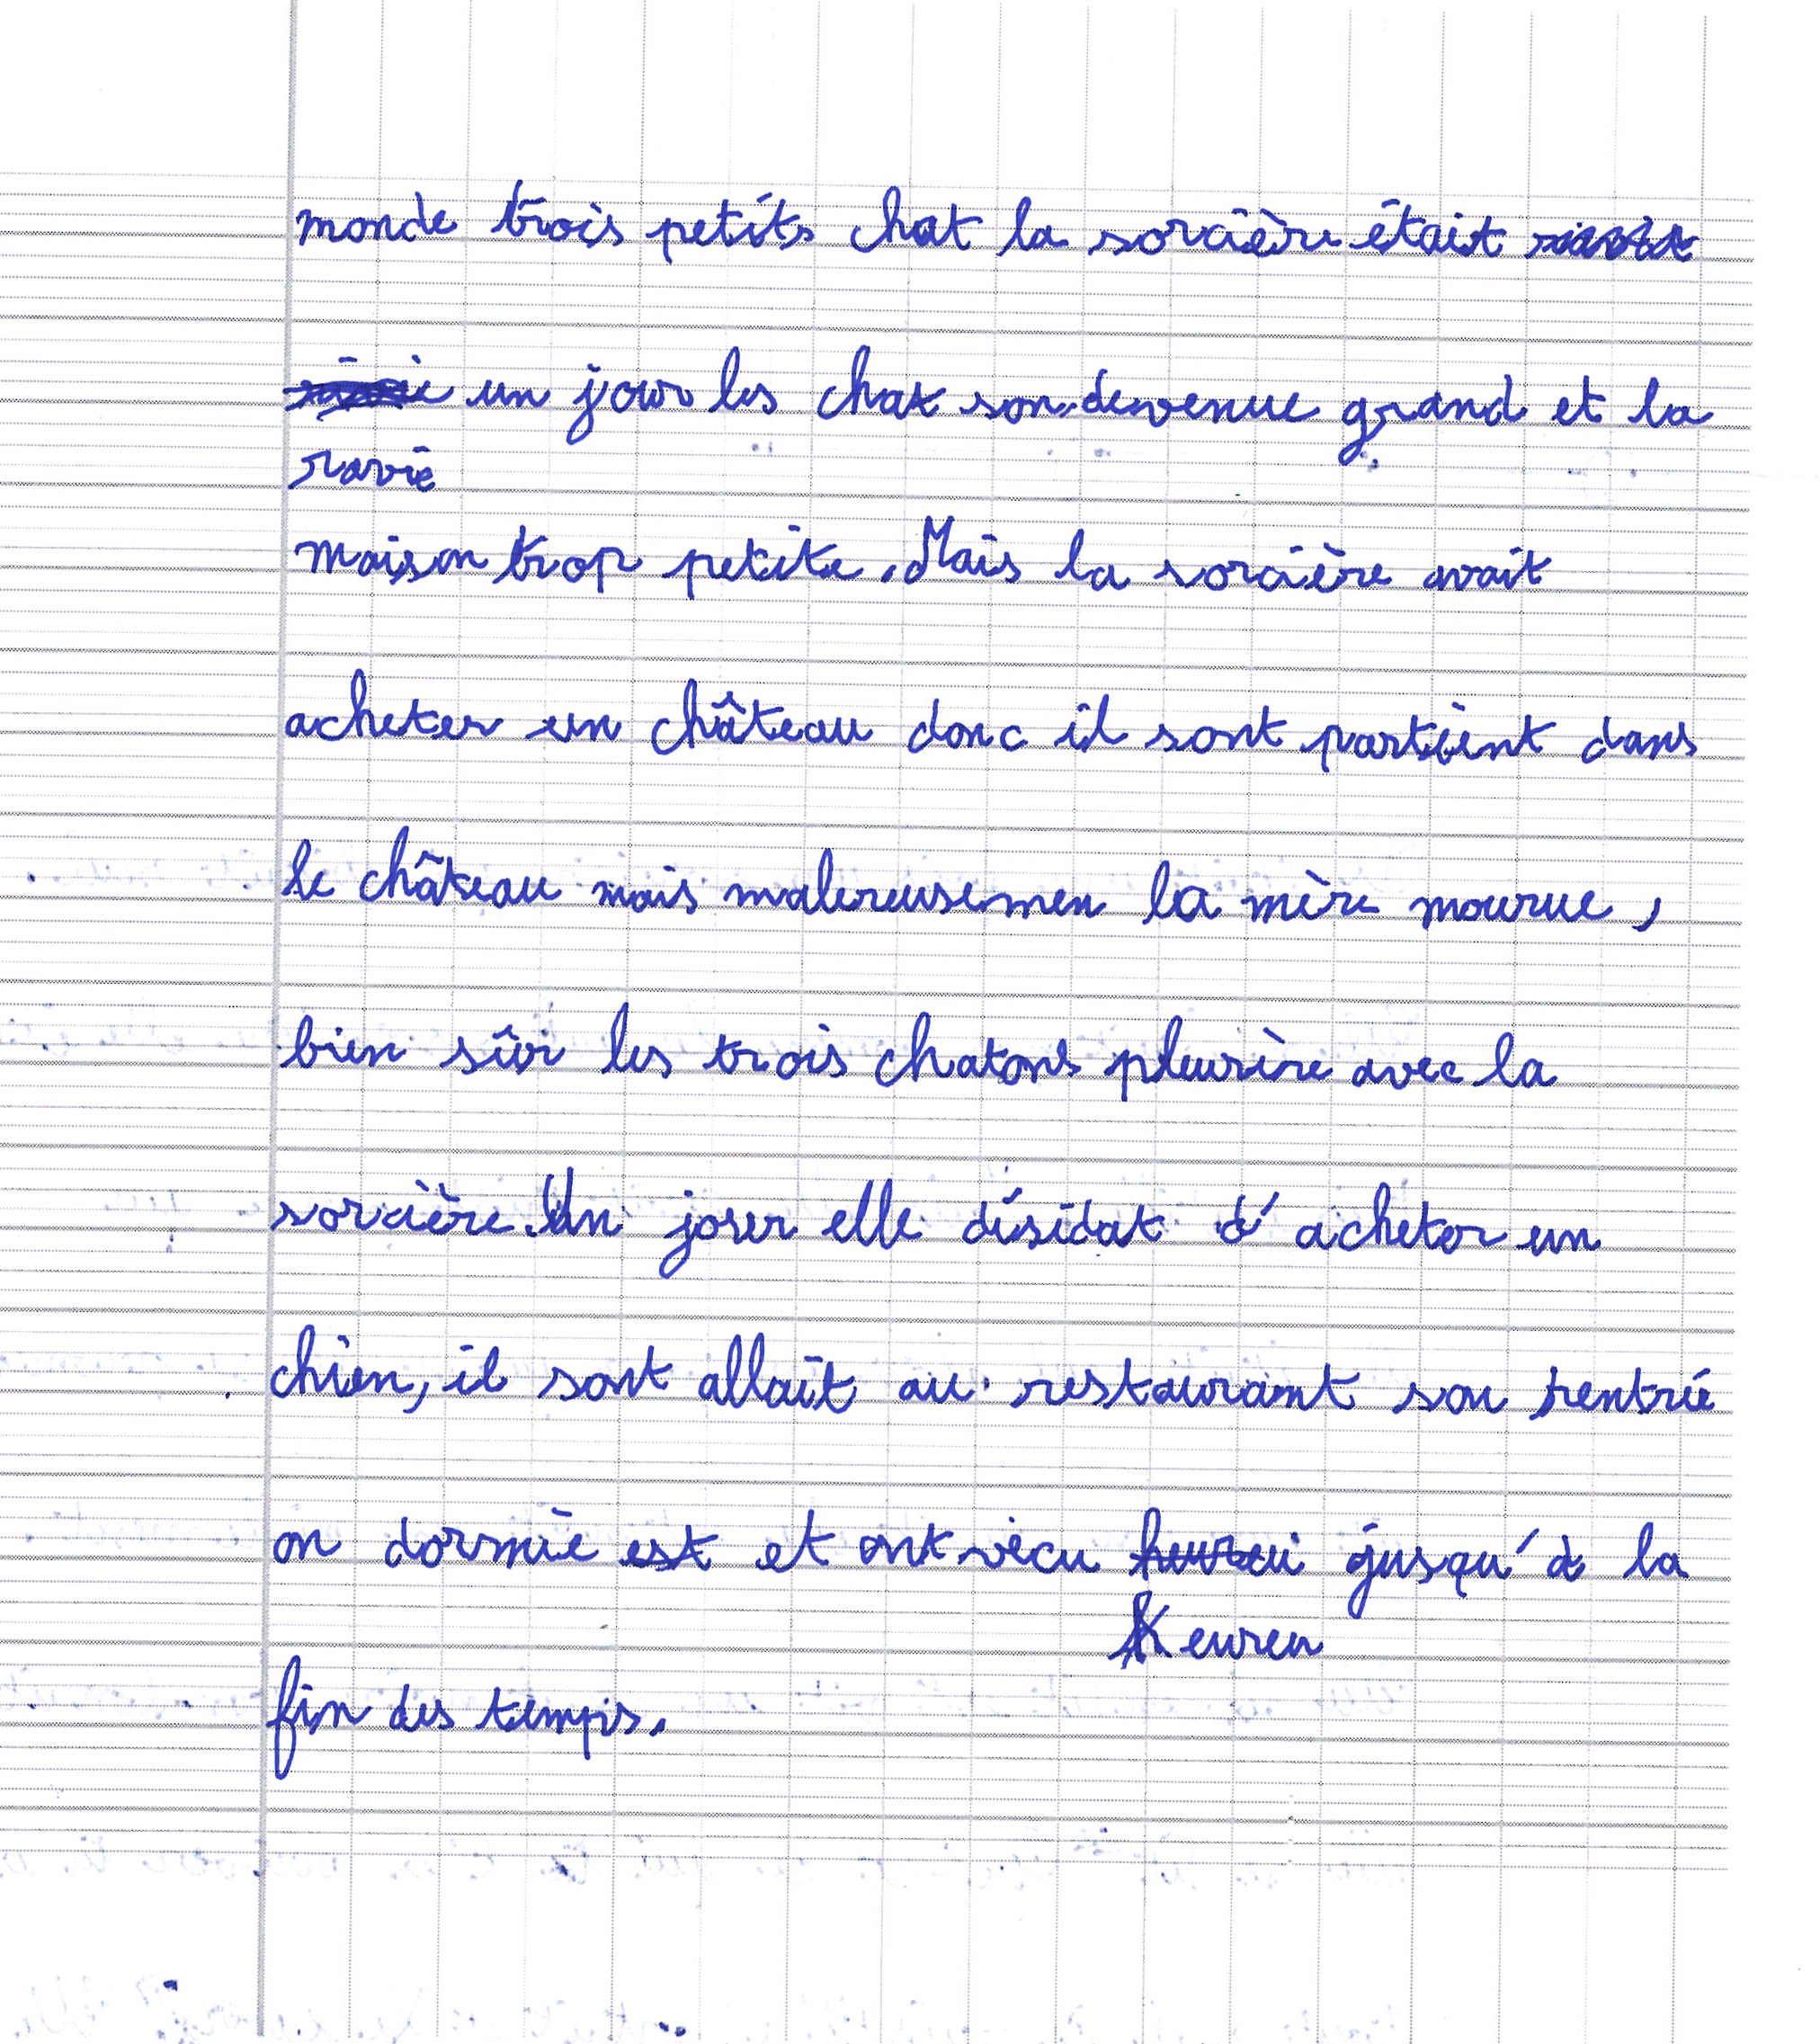 monde trois petits chat la sorcière était
un jour les chat son devenue grand et la
ravie
maison trop petite. Mais la sorcière avait
acheter un château donc il sont partient dans
le château mais malereusemen la mère mourue,
bien sûr les trois chatons pleurère avec la
sorcière. Un jour elle désidat d'acheter un
chien, il sont allait au restaurant son rentrée
on dormie est et ont vécu heureu jusqu'à la
heureu
fin des temps.